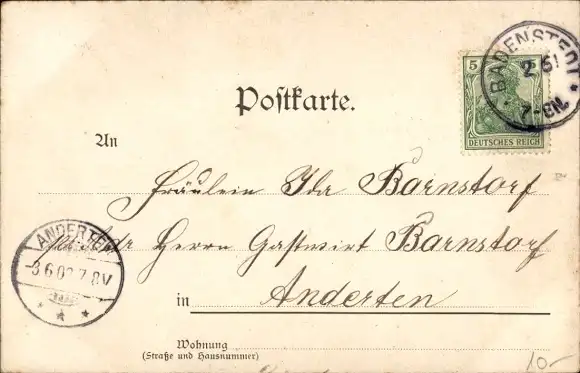 BADENSTEDT
2 6
7-8N.
5
DEUTSCHES REICH
Postkarte.
An
Fräulein Ida Barnstorf
Adr Herrn Gastwirt Barnstorf
in Anderten
ANDERTEN
3.6.02.7-8V
Wohnung
(Straße und Hausnummer)
10-